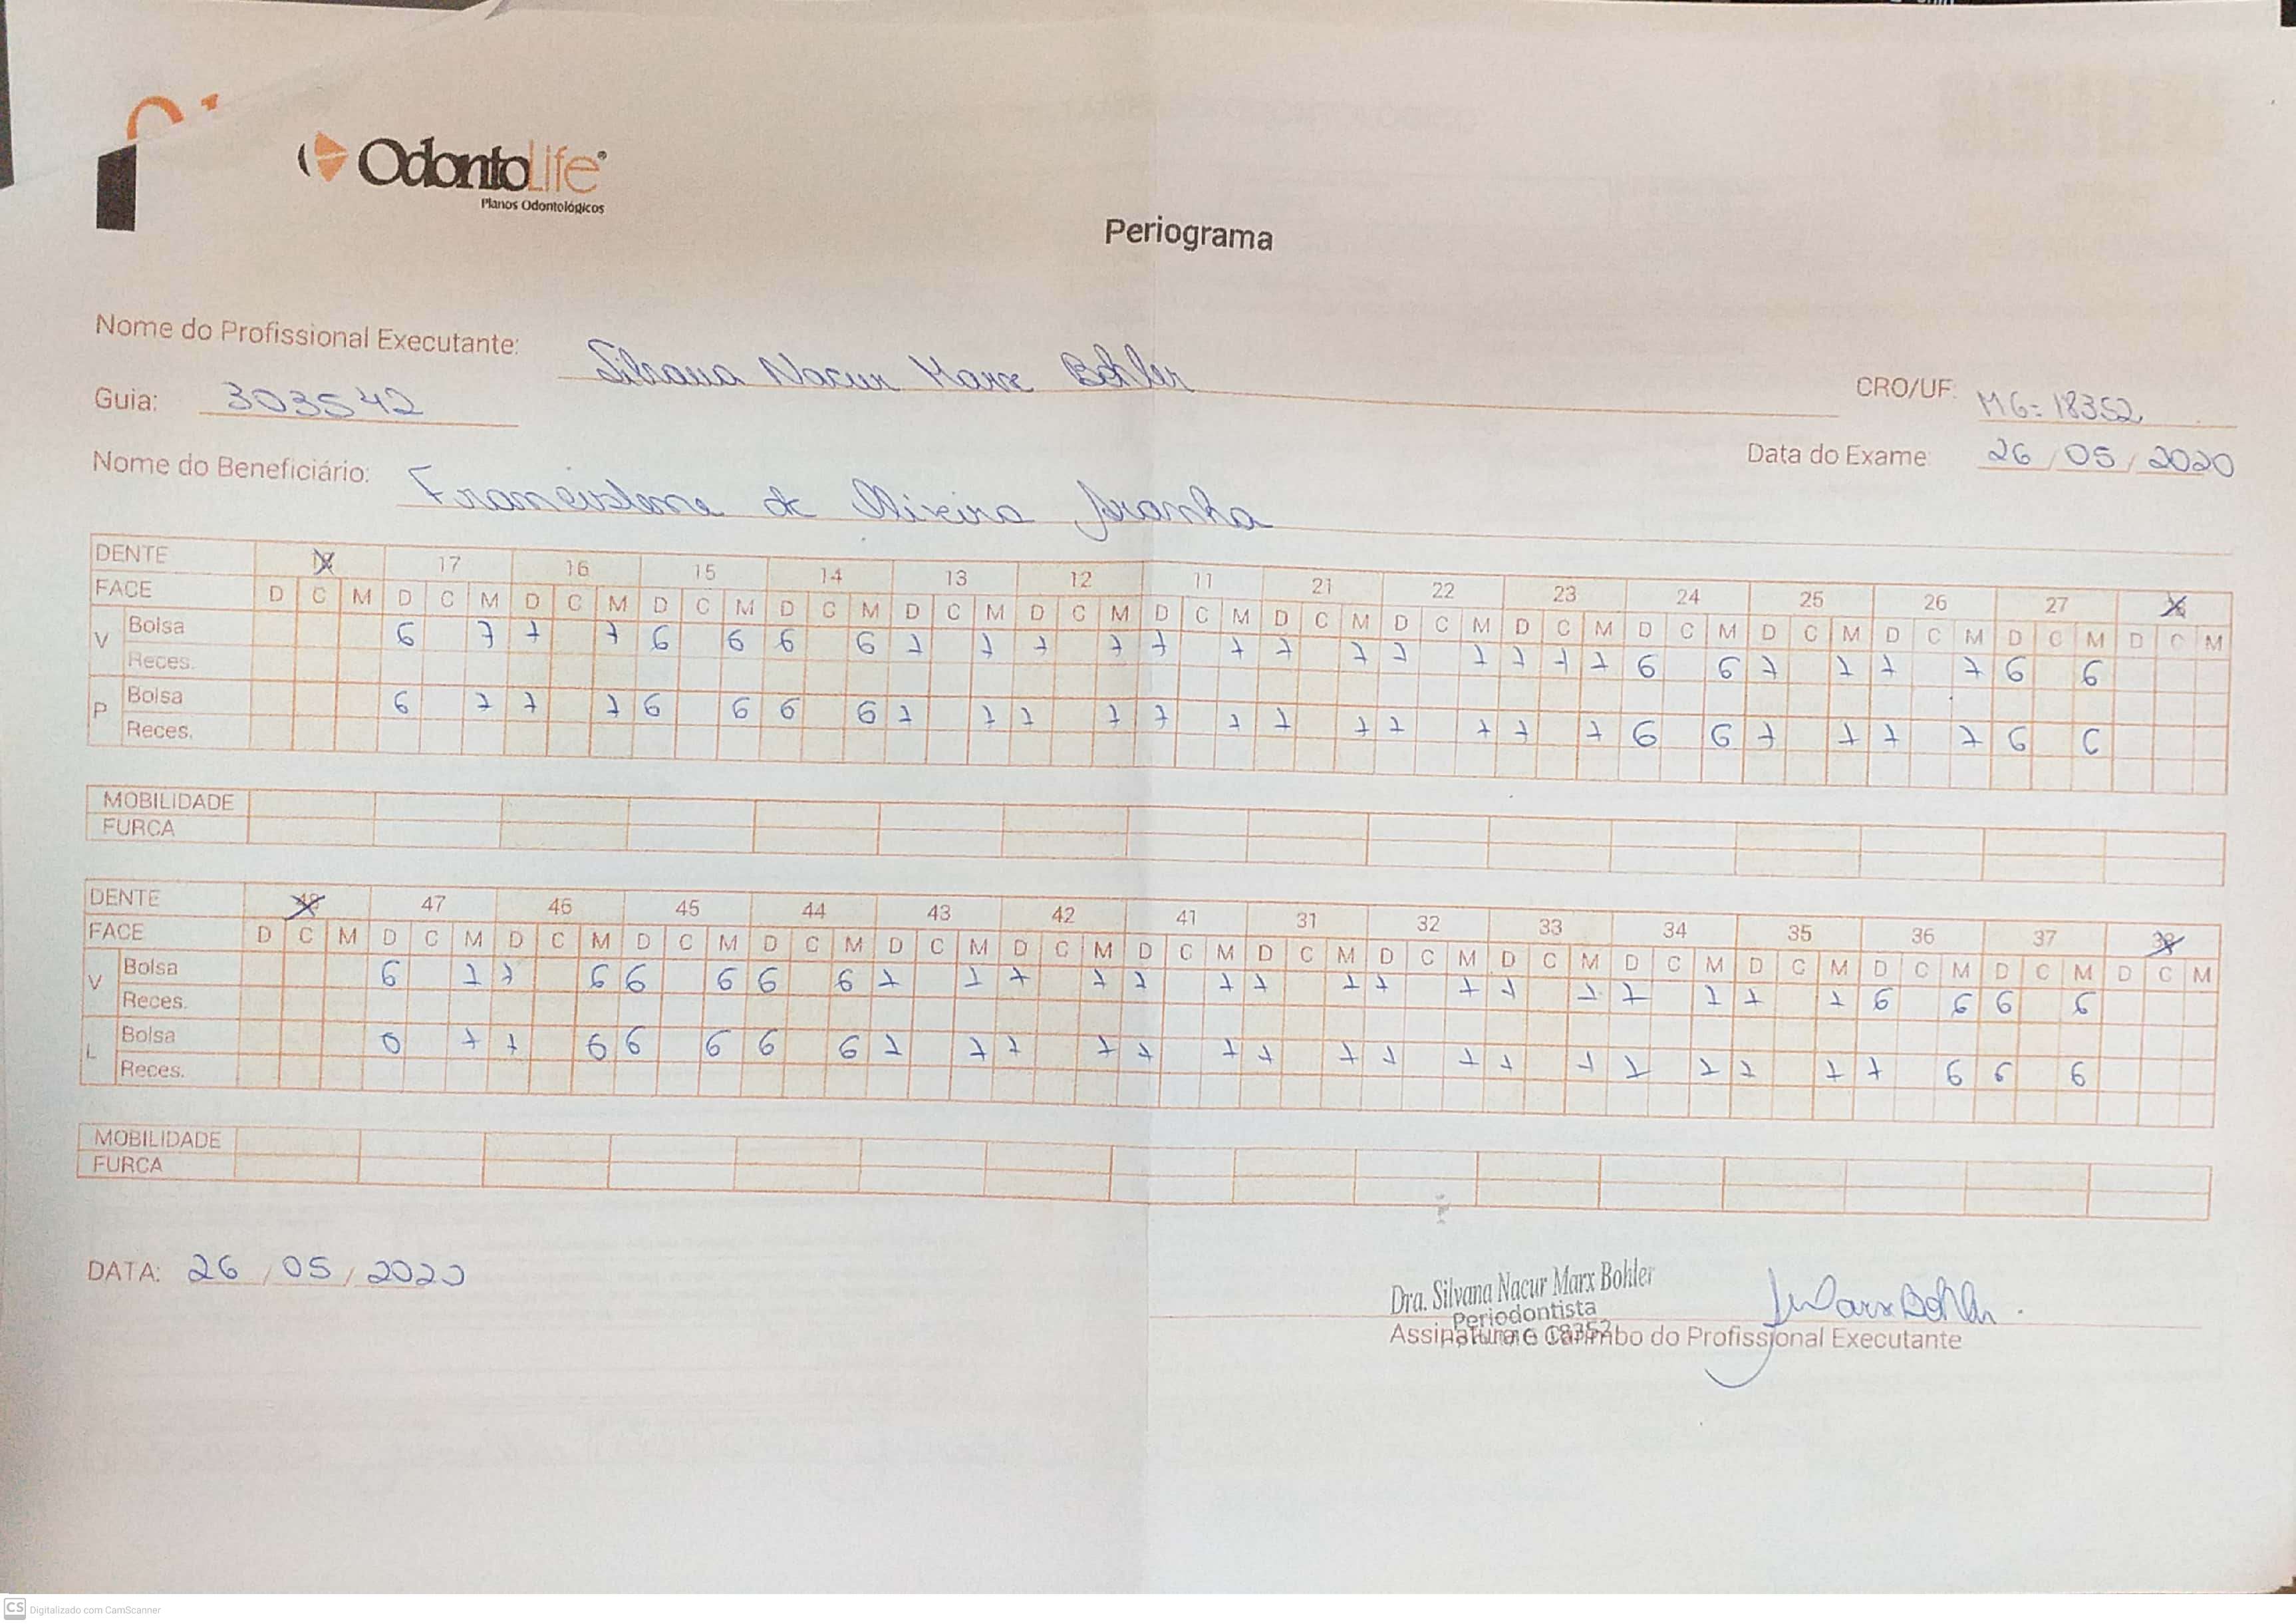 OdontoLife
Planos Odontológicos
Periograma
Nome do Profissional Executante: Silvana Nacur Marx Bohler
CRO/UF: MG=18352
Guia: 303542
Data do Exame: 26/05/2020
Nome do Beneficiário: de Oliveira Aranha
DENTE 17 16 15 14 13 12 11 21 22 23 24 25 26 27
FACE D C M D C M D C M D C M D C M D C M D C M D C M D C M D C M D C M D C M D C M D C M D C M D C M
V Bolsa 6 7 7 7 6 6 6 6 7 7 7 7 7 7 7 7 7 7 7 7 7 6 6 7 7 7 7 6 6
Reces.
P Bolsa 6 7 7 7 6 6 6 6 7 7 7 7 7 7 7 7 7 7 7 7 6 6 7 7 7 7 6 6
Reces.
MOBILIDADE
FURCA
DENTE 48 47 46 45 44 43 42 41 31 32 33 34 35 36 37 38
FACE D C M D C M D C M D C M D C M D C M D C M D C M D C M D C M D C M D C M D C M D C M D C M D C M
V Bolsa 6 7 7 6 6 6 6 6 7 7 7 7 7 7 7 7 7 7 7 7 7 7 7 7 6 6 6 6
Reces.
L Bolsa 6 7 7 6 6 6 6 6 7 7 7 7 7 7 7 7 7 7 7 7 7 7 7 7 7 6 6 6
Reces.
MOBILIDADE
FURCA
DATA: 26/05/2020
Dra. Silvana Nacur Marx Bohler
Periodontista
18352
Assinatura e Carimbo do Profissional Executante
CS Digitalizado com CamScanner